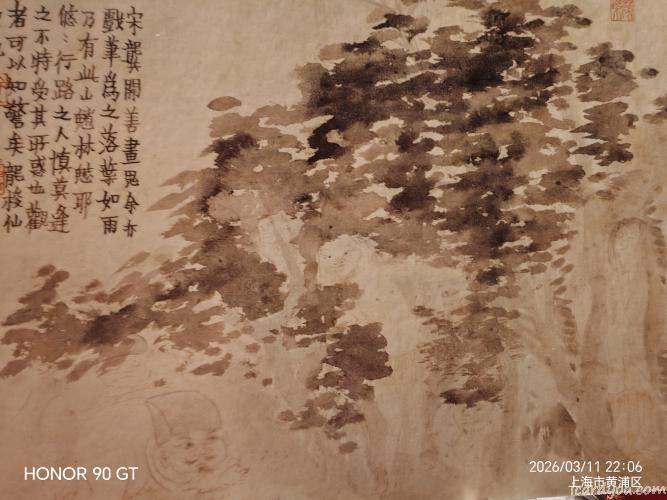 宋龔開善畫鬼余亦
戲筆爲之落葉如雨
乃有此山魈林魅耶
悠〻行路之人慎莫逢
之不特受其所惑也觀
者可以知警矣龍梭仙
HONOR 90 GT
2026/03/11 22:06
上海市黄浦区